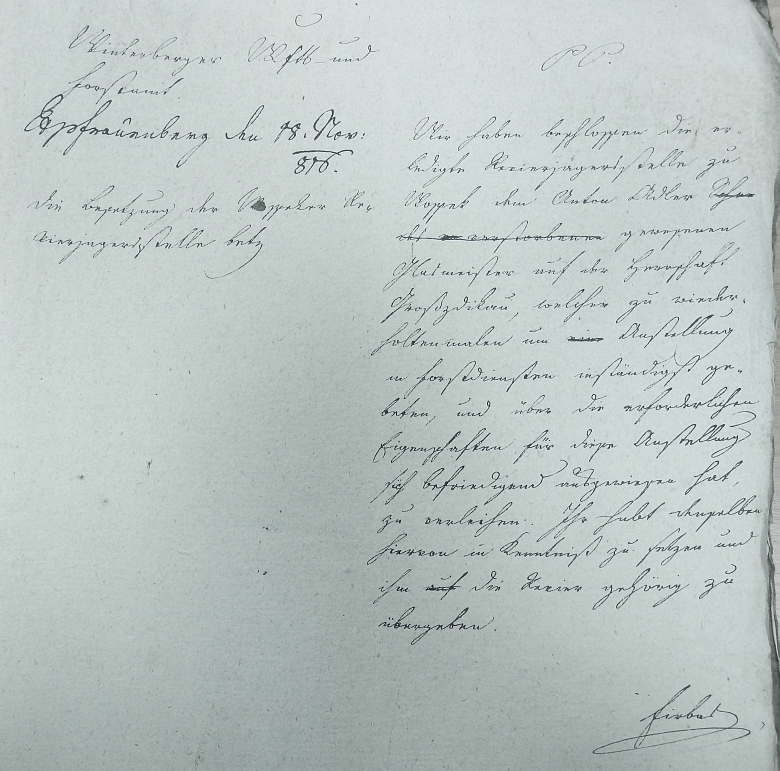 Winterberger Wfts- und
Forstamt.
Frauenberg den 18. Nov:
816.
Die Besetzung der Re-
vierjägersstelle betz
P. P.
Wir haben beschlossen die er-
ledigte Revierjägersstelle zu
dem Anton Adler Sohn
des verstorbenen gewesenen
Glasmeister auf der Herrschaft
Großzdikau, welcher zu wieder-
holtenmalen um eine Anstellung
in Forstdiensten inständigst ge-
beten, und über die erforderlichen
Eigenschaften für diese Anstellung
sich befriedigend ausgewiesen hat,
zu verleihen. Ihr habt denselben
hievon in Kenntniß zu setzen und
ihm auf die Revier gehörig zu
übergeben.